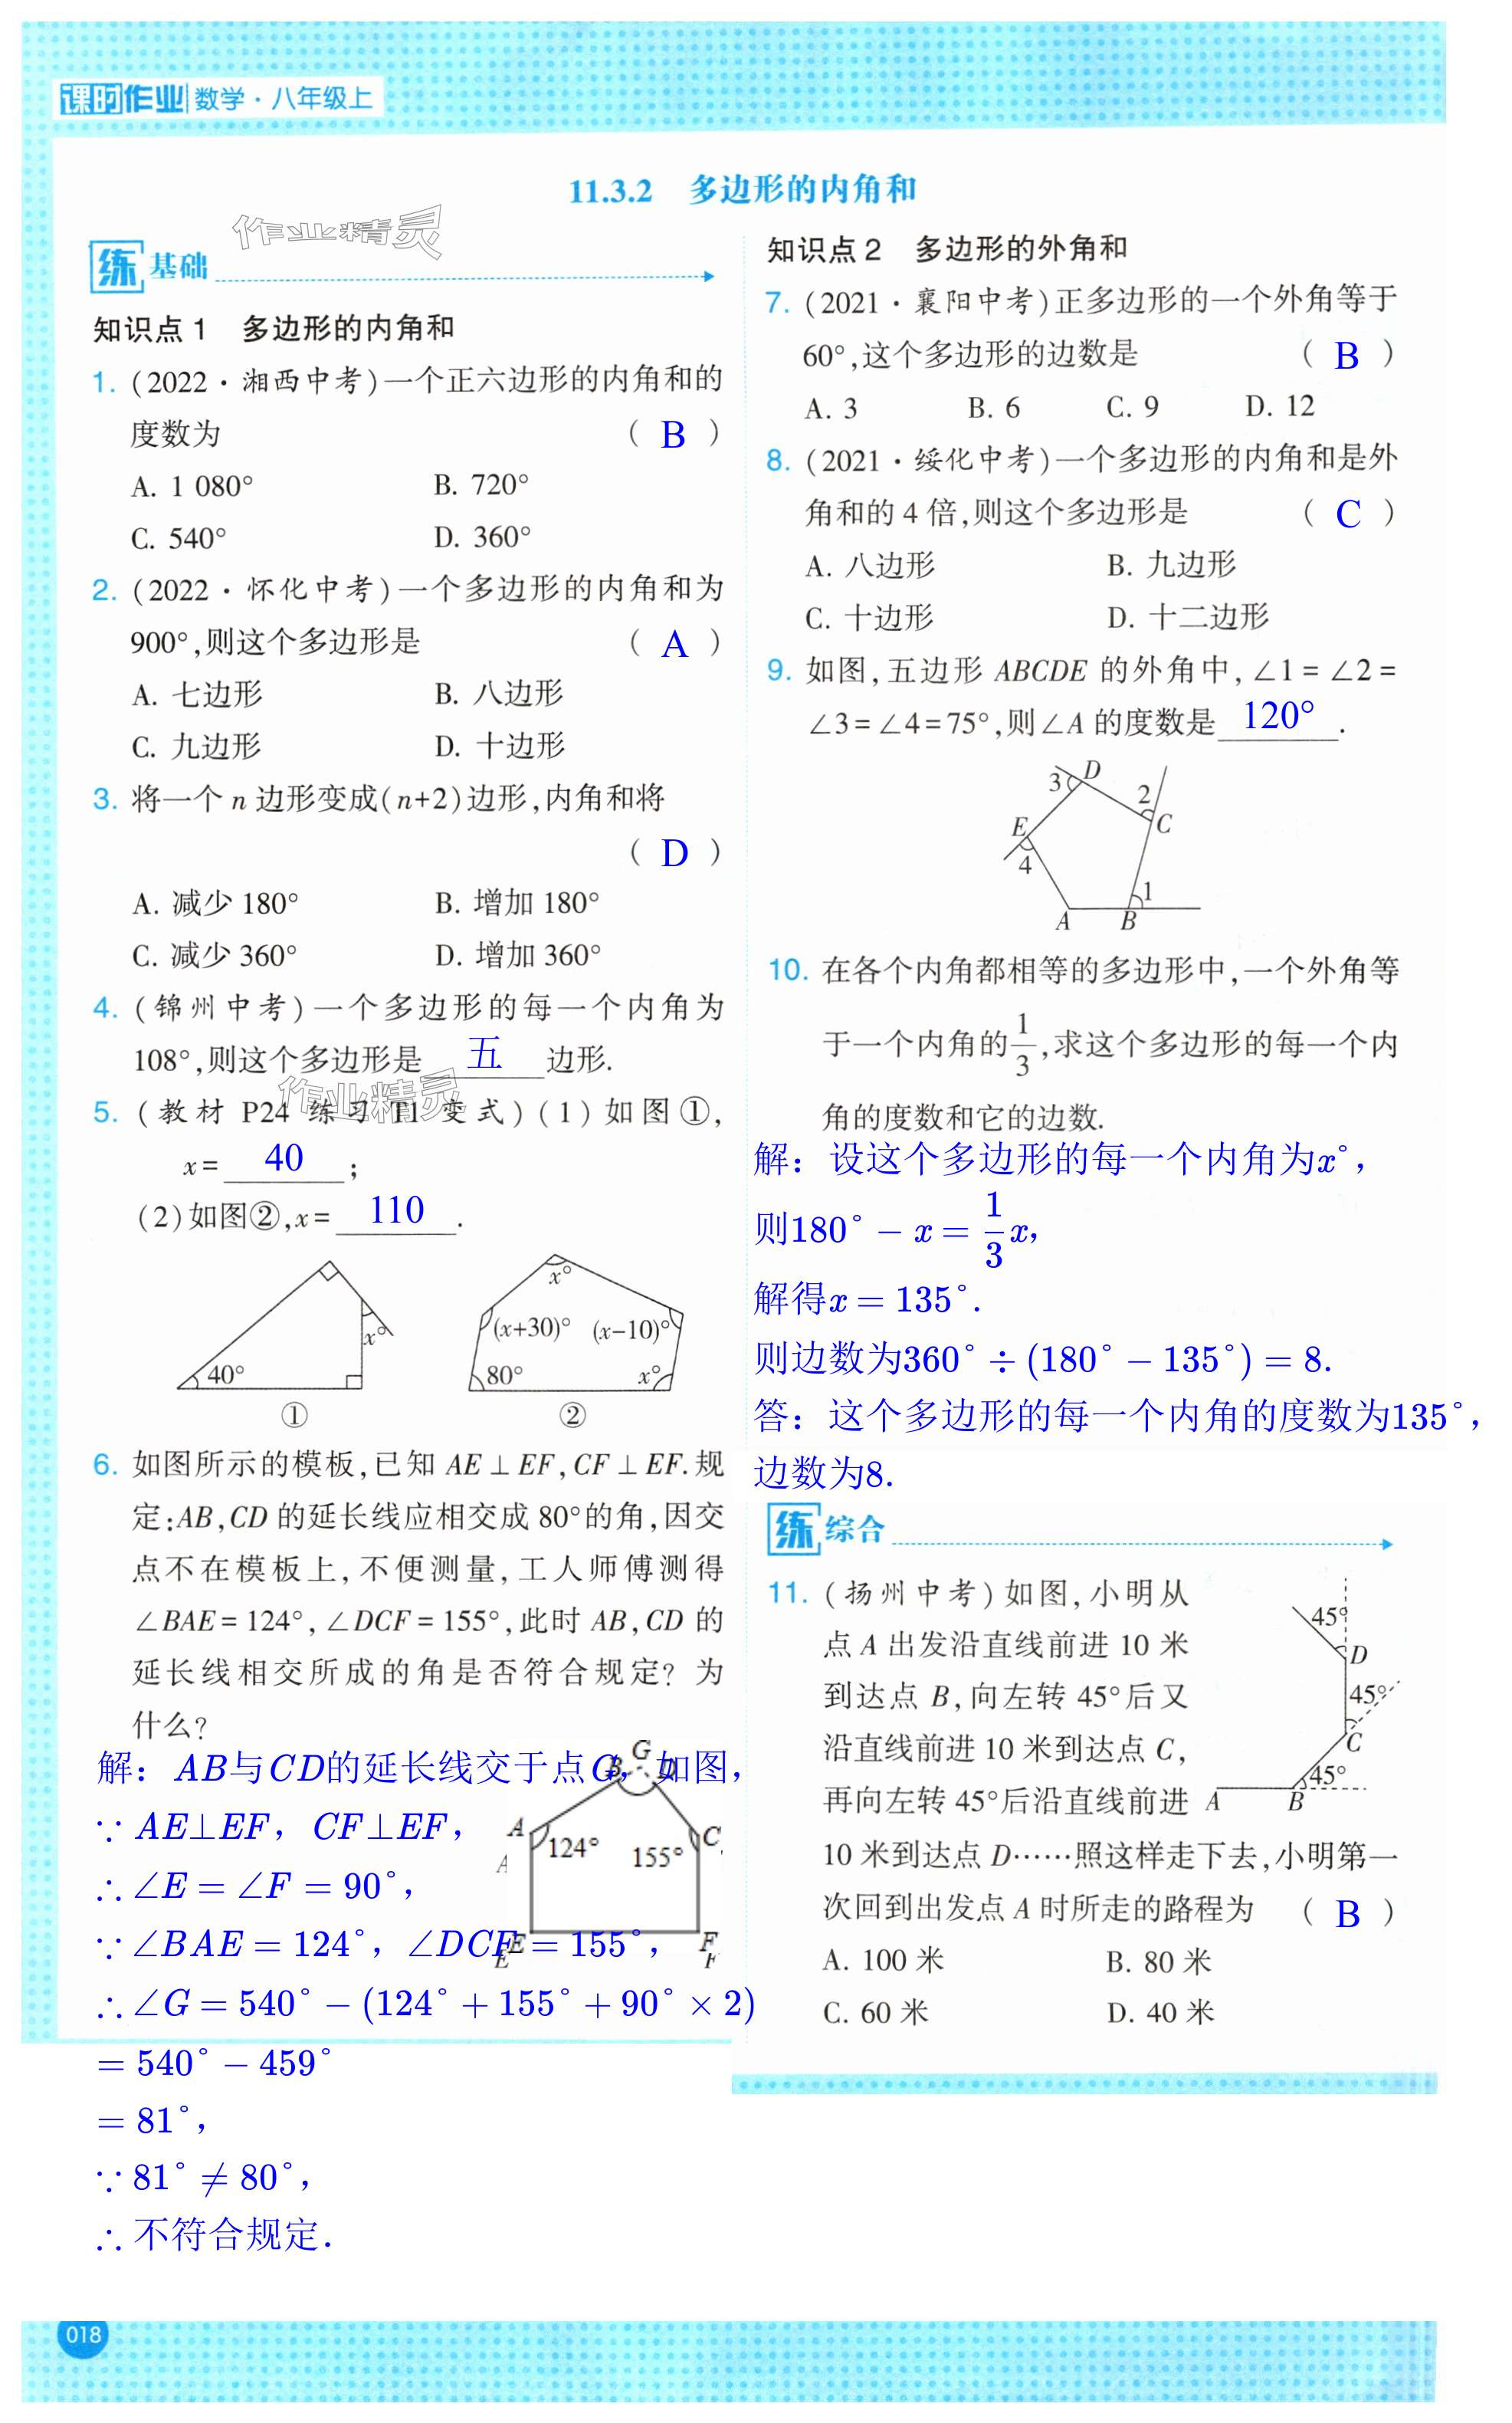 课时作业 数学·八年级上
11.3.2 多边形的内角和
作业精灵
练 基础
知识点 1 多边形的内角和
1. (2022·湘西中考)一个正六边形的内角和的
度数为 ( B )
A. 1 080° B. 720°
C. 540° D. 360°
2. (2022·怀化中考)一个多边形的内角和为
900°,则这个多边形是 ( A )
A. 七边形 B. 八边形
C. 九边形 D. 十边形
3. 将一个 n 边形变成(n+2)边形,内角和将
( D )
A. 减少 180° B. 增加 180°
C. 减少 360° D. 增加 360°
4. (锦州中考)一个多边形的每一个内角为
108°,则这个多边形是 五 边形.
作业精灵
5. (教材 P24 练习 T1 变式)(1)如图①,
x= 40 ;
(2)如图②,x= 110 .
40° x°
①
x° (x+30)° (x-10)° 80° x°
②
6. 如图所示的模板,已知 AE⊥EF,CF⊥EF.规
定:AB,CD 的延长线应相交成 80°的角,因交
点不在模板上,不便测量,工人师傅测得
∠BAE=124°,∠DCF=155°,此时 AB,CD 的
延长线相交所成的角是否符合规定? 为
什么?
解：AB与CD的延长线交于点G，如图，
∵AE⊥EF，CF⊥EF，
∴∠E=∠F=90°，
∵∠BAE=124°，∠DCF=155°，
∴∠G=540°-(124°+155°+90°×2)
=540°-459°
=81°，
∵81°≠80°，
∴不符合规定.
G
B D
A 124° 155° C
A
E F
E F
018
知识点 2 多边形的外角和
7. (2021·襄阳中考)正多边形的一个外角等于
60°,这个多边形的边数是 ( B )
A. 3 B. 6 C. 9 D. 12
8. (2021·绥化中考)一个多边形的内角和是外
角和的 4 倍,则这个多边形是 ( C )
A. 八边形 B. 九边形
C. 十边形 D. 十二边形
9. 如图,五边形 ABCDE 的外角中,∠1=∠2=
∠3=∠4=75°,则∠A 的度数是 120° .
3 D 2
E C
4 1
A B
10. 在各个内角都相等的多边形中,一个外角等
于一个内角的1/3,求这个多边形的每一个内
角的度数和它的边数.
解：设这个多边形的每一个内角为x°，
则180°-x=1/3x，
解得x=135°.
则边数为360°÷(180°-135°)=8.
答：这个多边形的每一个内角的度数为135°，
边数为8.
练 综合
11. (扬州中考)如图,小明从
点 A 出发沿直线前进 10 米
到达点 B,向左转 45°后又
沿直线前进 10 米到达点 C,
再向左转 45°后沿直线前进
10 米到达点 D……照这样走下去,小明第一
次回到出发点 A 时所走的路程为 ( B )
A. 100 米 B. 80 米
C. 60 米 D. 40 米
45°
D
45°
C
45°
A B